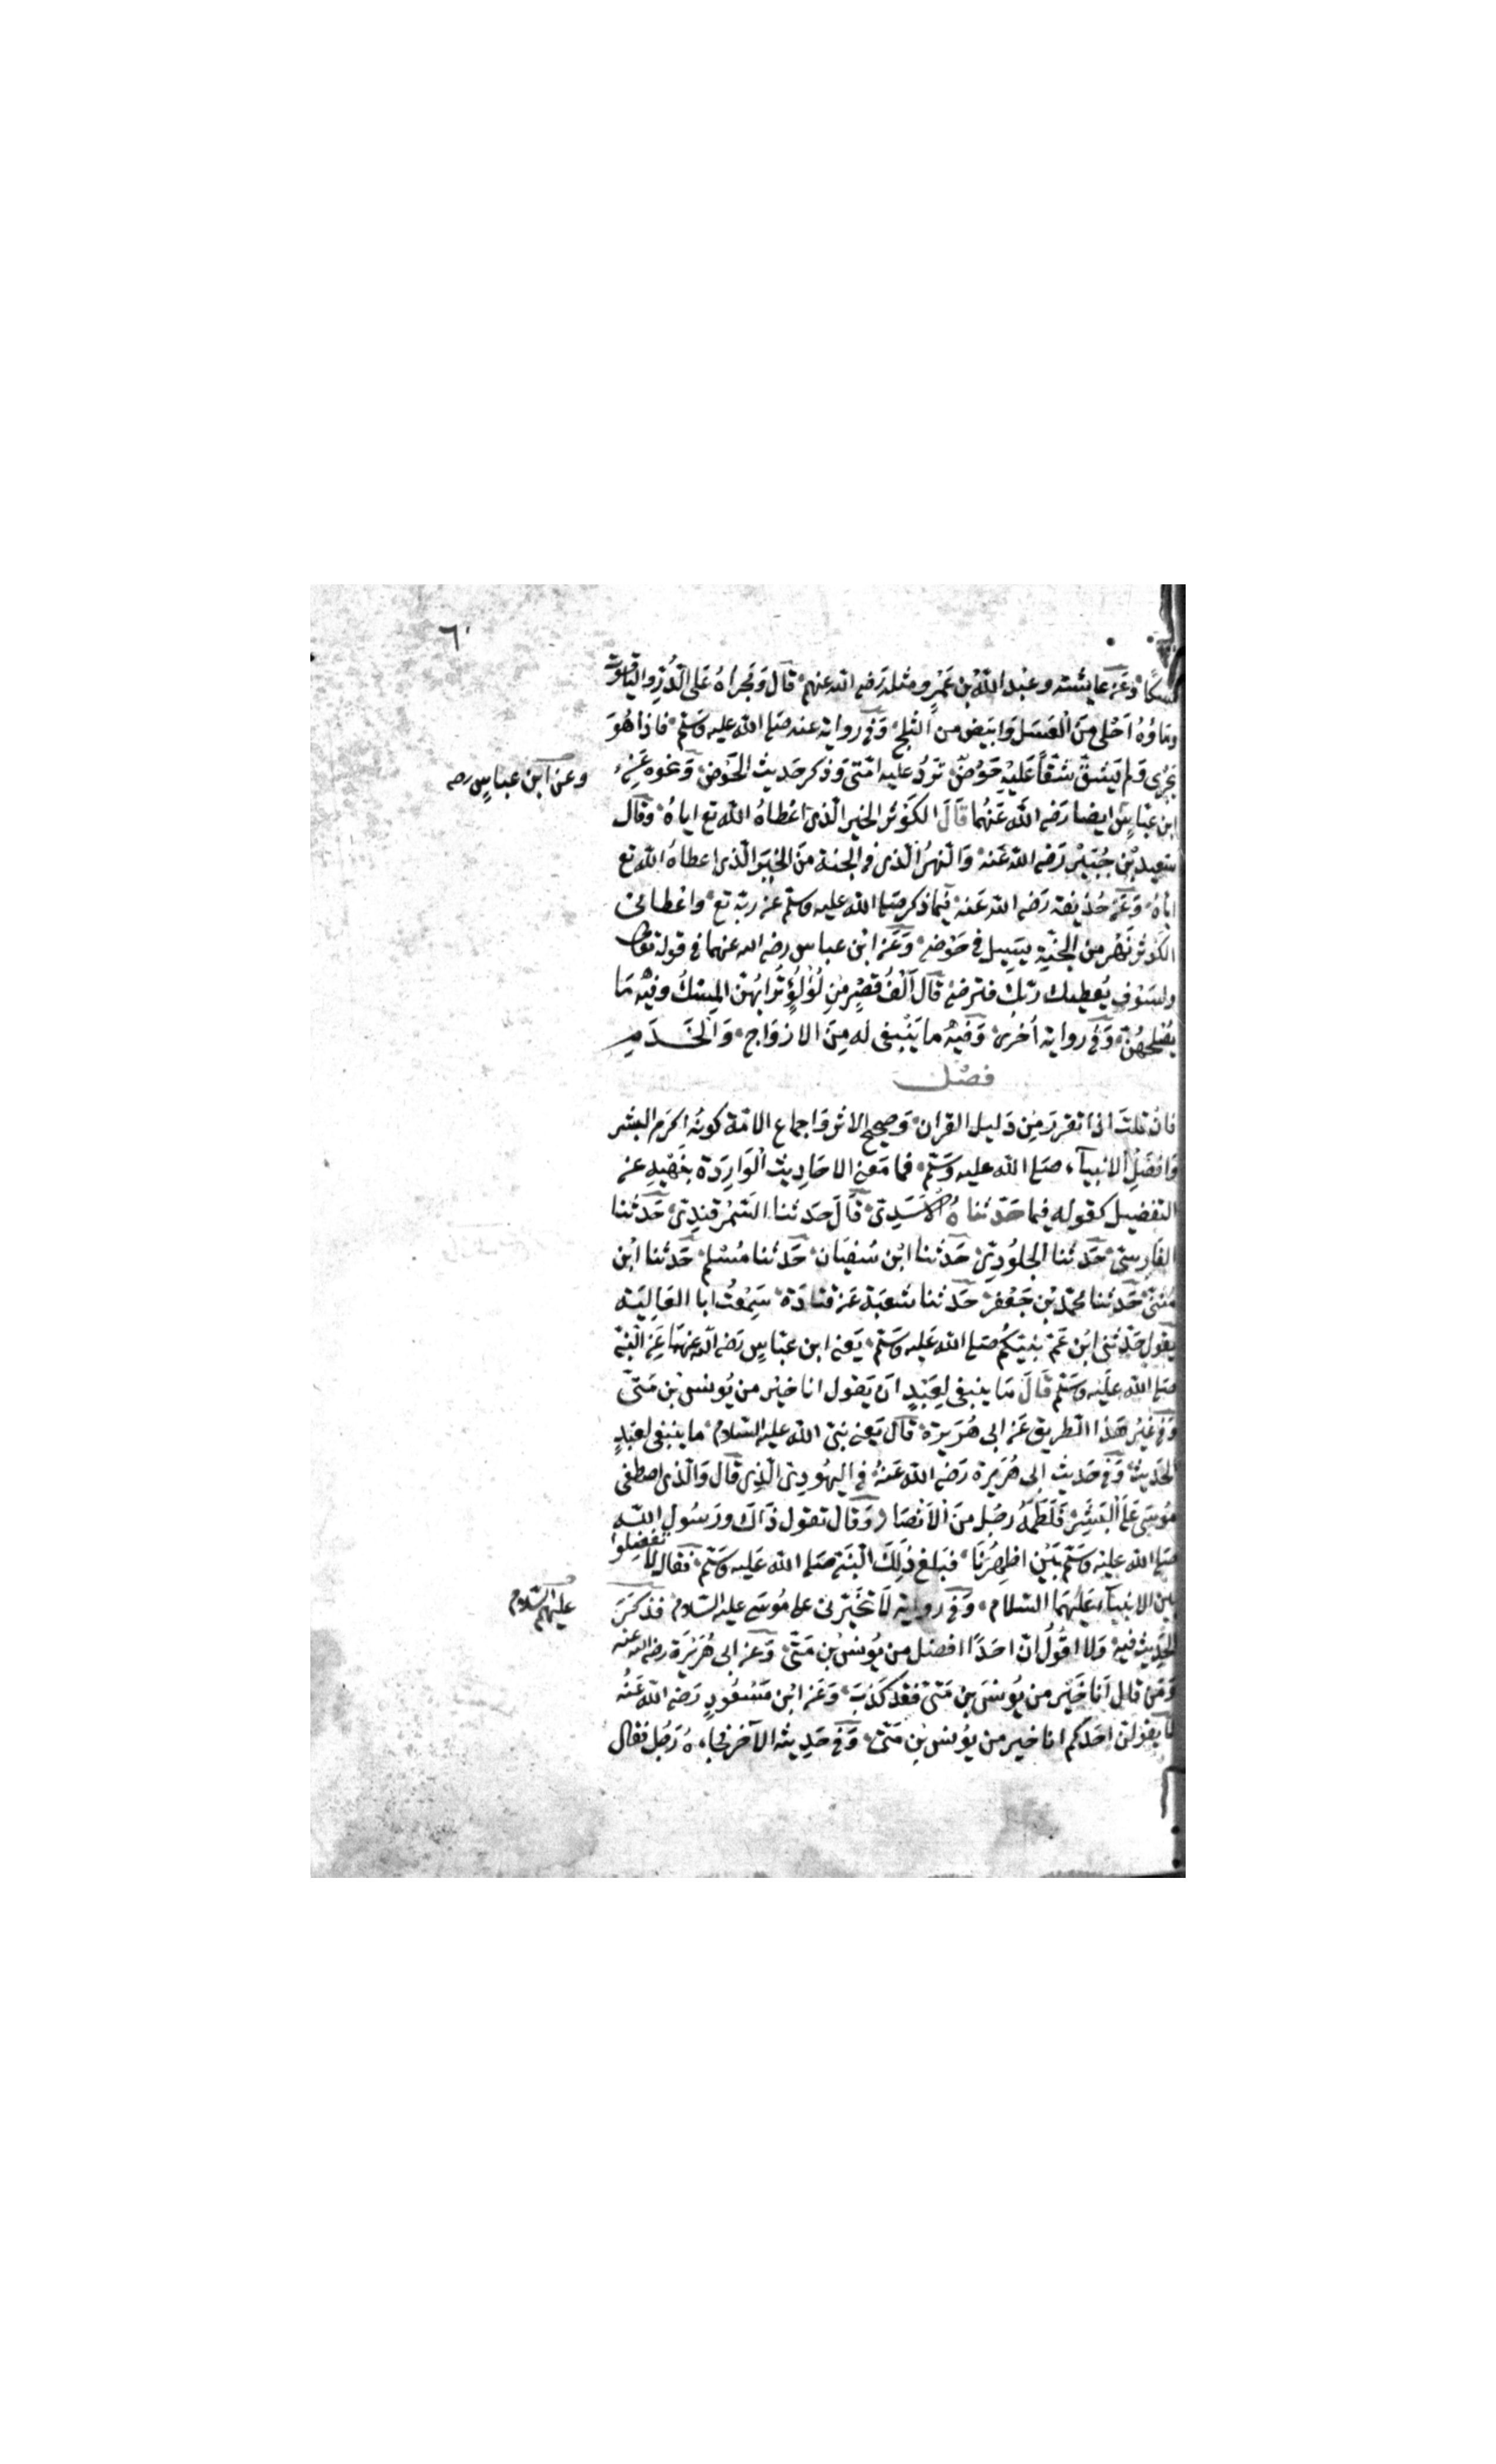 ٦٠
مسكا وَعَنْ عايشة وعبد اللهِ بن عَمْرٍو مثله رَضي الله عنهم قَالَ وَمَجراهُ عَلى الدُّرِّ والياقوت
وماؤهُ اَحْلى مِنَ الْعَسَلِ وَابيَض من الثلج وَفي رواية عنه صَلى الله عليه وَسَلم فاذا هُوَ
يَجْرى وَلم يَشُقّ شَقّاً عَلَيْهِ حَوْضٌ تَرِدُ عليه امّتى وَذكر حَديث الحَوْض وَنحوه عَنِ
وعن ابن عباسٍ رضه
ابن عَبّاسٍ ايضا رَضي الله عَنهُما قَالَ الكَوْثَر الخير الّذى اعْطاهُ الله تع اياهُ وَقال
سَعِيد بْن جُبَيْر رَضي الله عَنه وَالنهرُ الّذى في الجنة مِنَ الخَيْر الّذى اعطاهُ الله تع
اياهُ وَعَنْ حُذَيفة رَضي الله عَنه فيما ذكر صَلى الله عليه وسلم عن ربّه تع واعْطانى
الكَوثر نَهْر من الجنّةِ يَسِيل في حَوْضى وَعَن ابْن عباس رضي الله عنهما في قوله تعالى
ولسَوْف يُعطيك رَبّك فترضى قَالَ اَلْفُ قَصْرٍ مِنْ لُؤْلُؤٍ تُرَابُهُنّ المِسْكُ وفيْهِ مَا
يُصْلِحهُنّ وَفي رواية اُخرى وَفيْهِ ما يَنْبغى له مِنَ الازْوَاج وَالخَدَمِ
فصْل
فانْ قلتَ اذا تقرر مِن دَليل القران وَصحيح الاثر وَاجماع الامّة كونُهُ اكرَم البشر
وَافضل الانبيآء صَلى الله عليه وَسَلم فما مَعنى الاحَادِيث الْوَارِدَة بِنَهْيهِ عن
التفضيل كقوله فيما حَدّثناهُ الاَسَدِىّ قَالَ حَدثنا السَّمَرْقندِىّ حَدثنا
الفَارِسىّ حَدثنا الجلُودِىّ حَدثنا ابْن سُفيَان حَدثنا مُسْلِم حَدثنا ابْن
مُثَنى حَدثنا محمّد بْن جَعْفر حَدثنا شعبَة عَن قتادَة سَمِعْتُ ابا العَالِيَة
يَقول حَدّثنى ابْن عَمّ نبيّكُم صَلى الله عَليه وَسَلم يَعنى ابن عبّاسٍ رَضي الله عنهمَا عَنِ النّبىّ
صَلى الله عَلَيْه وَسَلم قَالَ مَا ينبغى لِعَبْدٍ اَن يَقول انا خيْر من يُونسَ بْن مَتّى
وَفي غَيْر هَذا الطريق عَن ابى هُرَيرَة قَالَ يَعنى نبىّ الله عليه السّلامُ ما ينبغى لعَبْدٍ
الحَدِيث وَفي حَديث ابى هُرَيرة رَضي الله عَنهُ في اليهُودِىّ الّذِى قَالَ وَالّذى اصطفى
مُوسَى عَلَى الْبَشَرِ فَلَطَمَهُ رجُل مِنَ الْاَنْصَارِ وَقال تقول ذَالكَ ورَسُول الله
صَلى الله عليْه وَسَلم بَيْن اظهُرِنَا فبَلغ ذٰلِكَ النّبىّ صَلى الله عَليه وَسَلم فقال لا تفضِلوا
بين الانبيآء عَلَيْهمَا السّلام وَفي رواية لَا تخَيّرونى على مُوسَى عليه السّلامُ فذكَرَ
عليهم السّلامُ
الحَدِيث فيه وَلا اقولُ انّ احَدًا افضل من يُونسَ بْن مَتّى وَعن ابى هُرَيْرَة رضي الله عنه
وَمَن قال اَنا خَيْر من يُونسَ بن مَتّى فقد كذبَ وَعَن ابْن مَسْعُودٍ رَضي الله عَنهُ
لا يقولنّ احَدكم انا خير من يونس بْن مَتّى وَفي حَدِيثه الآخر فجآءهُ رَجُل فقال